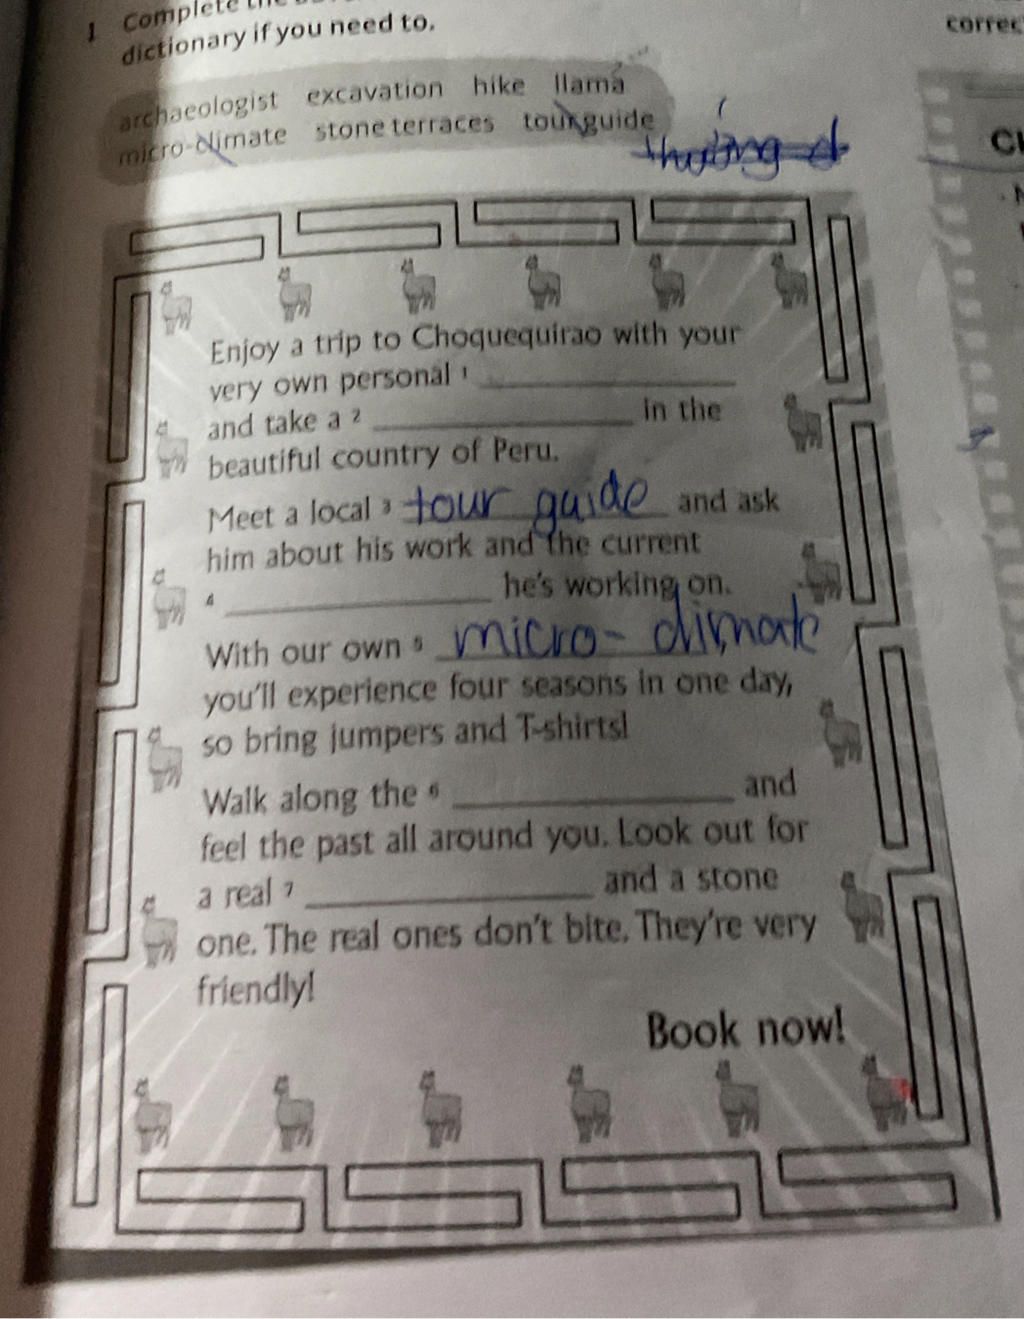 1 Complete the
dictionary if you need to.
correc
archaeologist excavation hike llama
micro-climate stone terraces tour guide
Cl
Enjoy a trip to Choquequirao with your
very own personal 1 ____________
and take a 2 ____________ in the
beautiful country of Peru.
Meet a local 3 tour guide and ask
him about his work and the current
4 ____________ he's working on.
With our own 5 micro-climate
you'll experience four seasons in one day,
so bring jumpers and T-shirts!
Walk along the 6 ____________ and
feel the past all around you. Look out for
a real 7 ____________ and a stone
one. The real ones don't bite. They're very
friendly!
Book now!